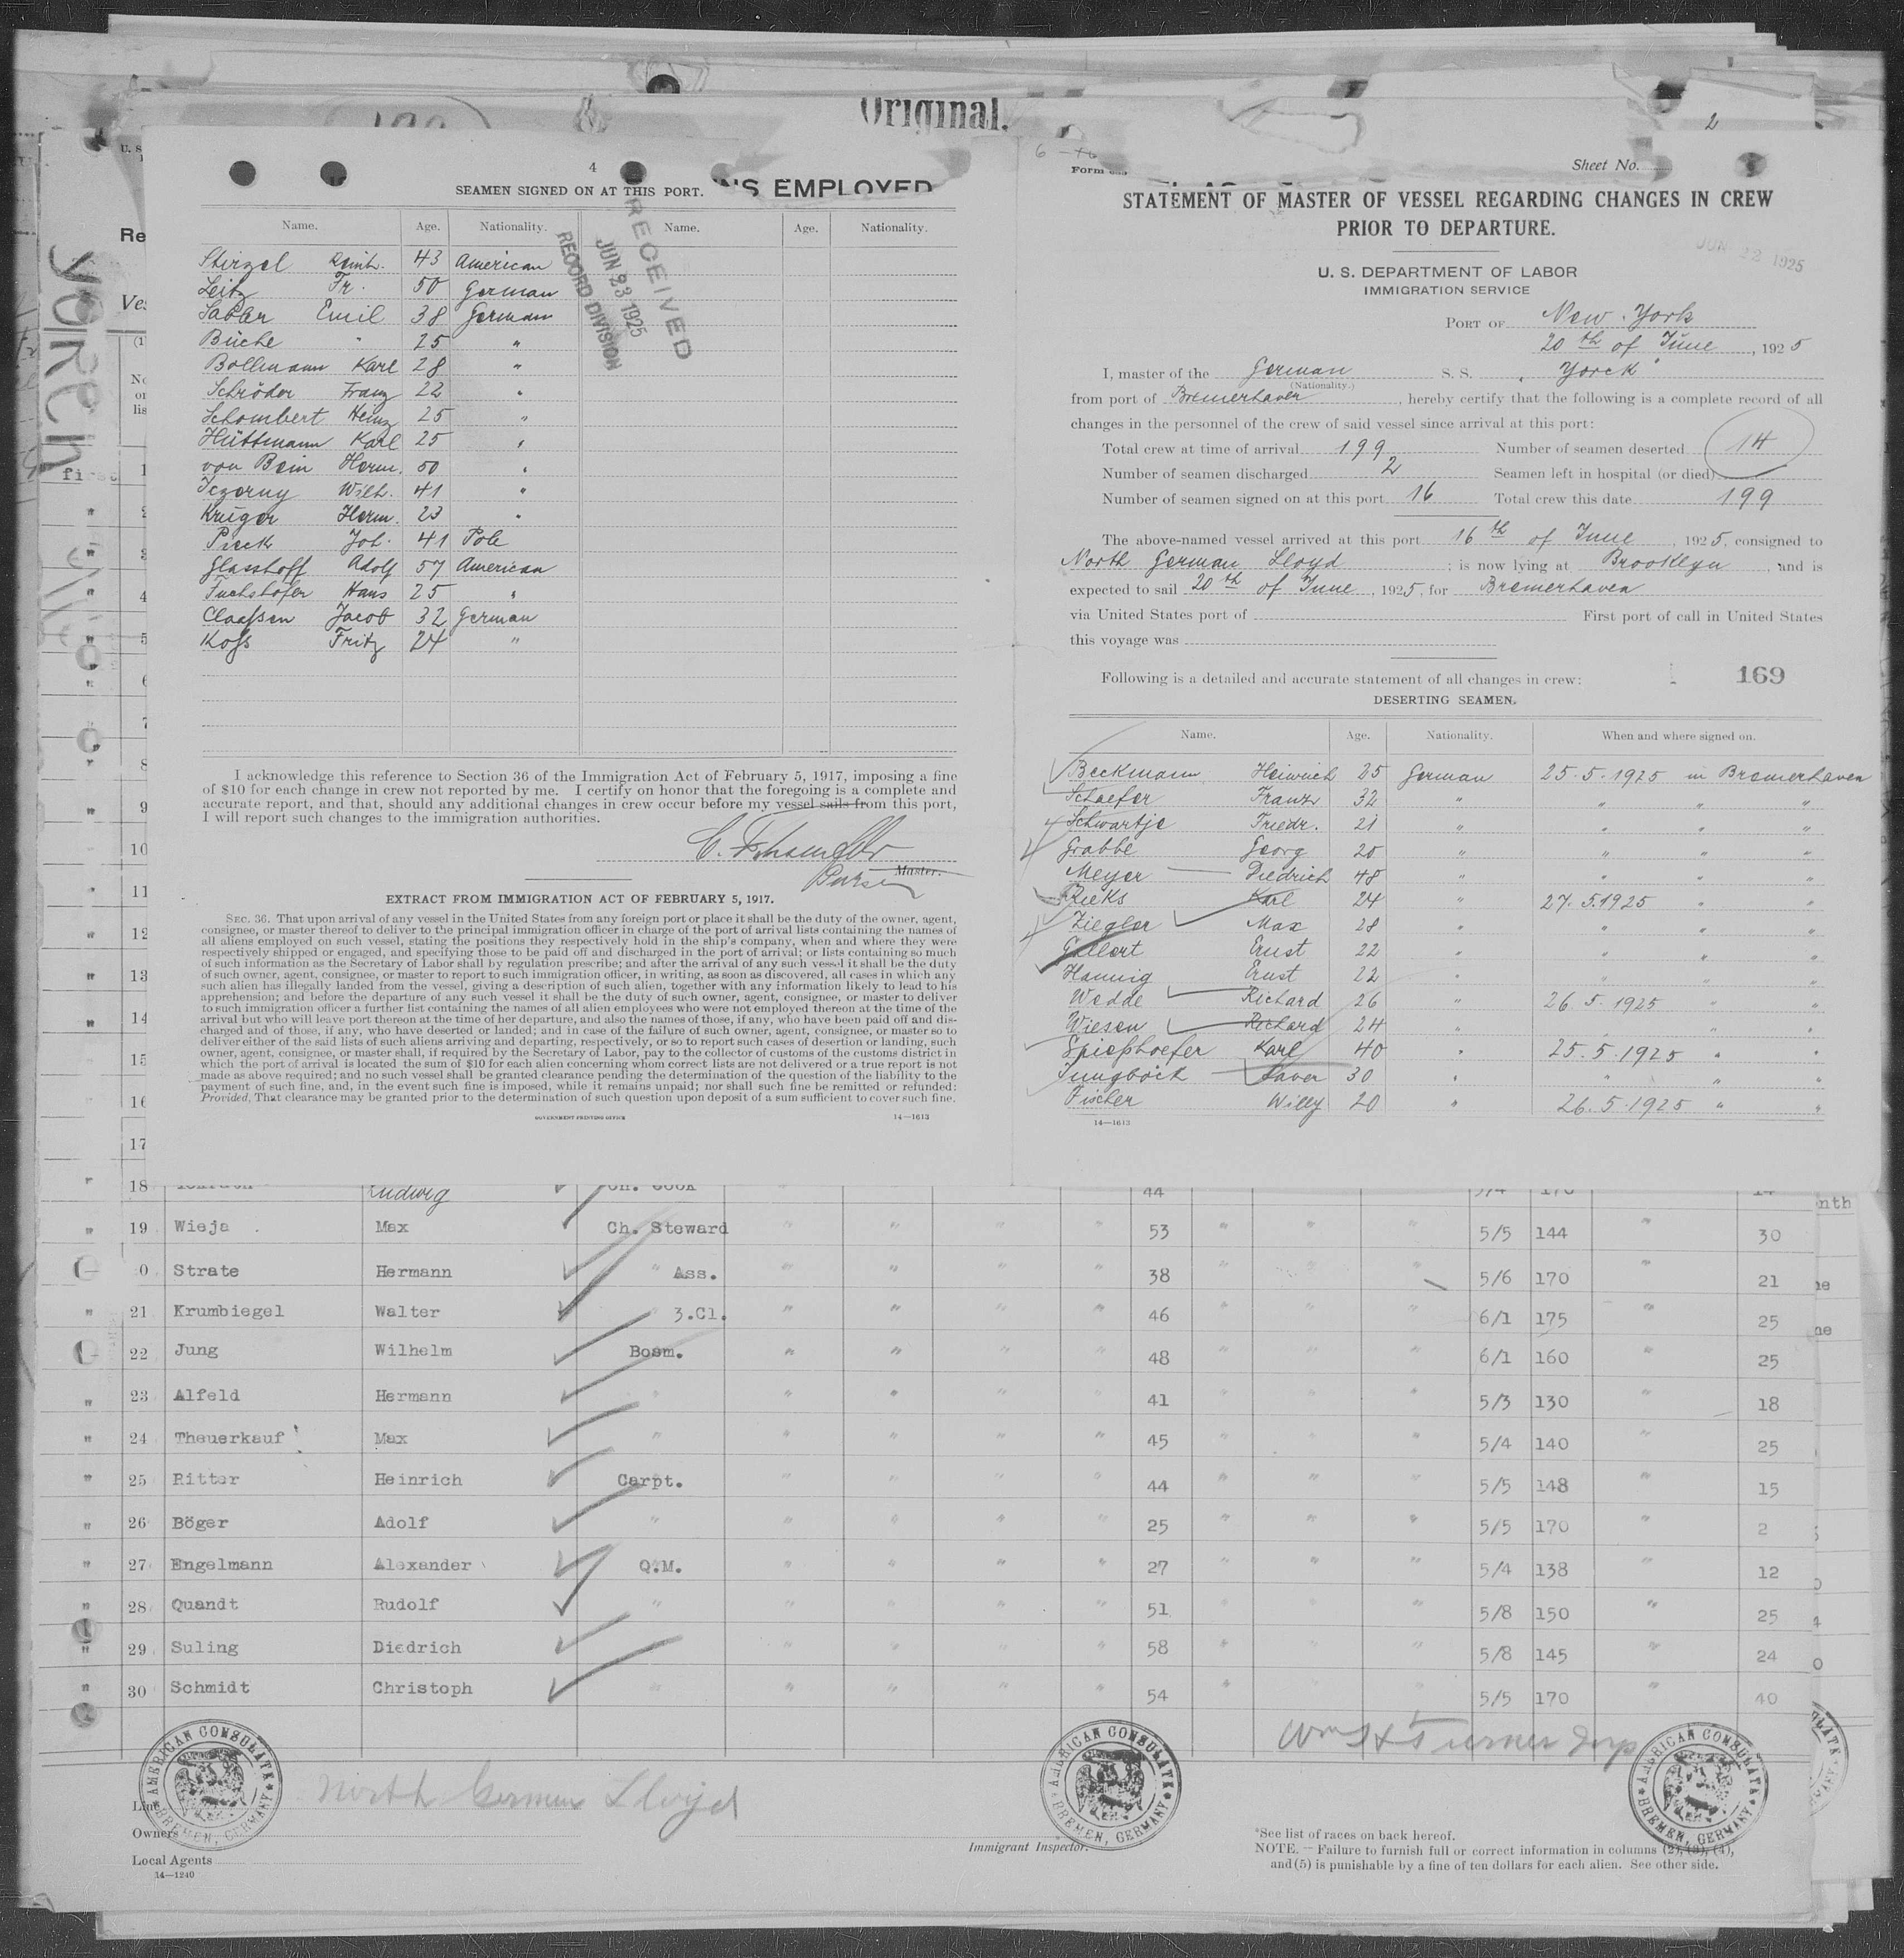 Original.
4
SEAMEN SIGNED ON AT THIS PORT.
NS EMPLOYED
Name. Age. Nationality. Name. Age. Nationality.
RECEIVED
JUN 23 1925
RECORD DIVISION
Stirzel Reinh. 43 American
Leitz Fr. 50 German
Sabar Emil 38 German
Büche " 25 "
Bollmann Karl 28 "
Schröder Franz 22 "
Schombert Heinz 25 "
Hüttmann Karl 25 "
von Bein Herm. 50 "
Tczorny Wilh. 41 "
Krüger Herm. 23 "
Pieck Joh. 41 Pole
Glasshoff Adolf 57 American
Fuchshofer Hans 25 "
Claaßen Jacob 32 German
Koss Fritz 24 "
I acknowledge this reference to Section 36 of the Immigration Act of February 5, 1917, imposing a fine
of $10 for each change in crew not reported by me. I certify on honor that the foregoing is a complete and
accurate report, and that, should any additional changes in crew occur before my vessel sails from this port,
I will report such changes to the immigration authorities.
Master.
Purser
EXTRACT FROM IMMIGRATION ACT OF FEBRUARY 5, 1917.
SEC. 36. That upon arrival of any vessel in the United States from any foreign port or place it shall be the duty of the owner, agent,
consignee, or master thereof to deliver to the principal immigration officer in charge of the port of arrival lists containing the names of
all aliens employed on such vessel, stating the positions they respectively hold in the ship's company, when and where they were
respectively shipped or engaged, and specifying those to be paid off and discharged in the port of arrival; or lists containing so much
of such information as the Secretary of Labor shall by regulation prescribe; and after the arrival of any such vessel it shall be the duty
of such owner, agent, consignee, or master to report to such immigration officer, in writing, as soon as discovered, all cases in which any
such alien has illegally landed from the vessel, giving a description of such alien, together with any information likely to lead to his
apprehension; and before the departure of any such vessel it shall be the duty of such owner, agent, consignee, or master to deliver
to such immigration officer a further list containing the names of all alien employees who were not employed thereon at the time of the
arrival but who will leave port thereon at the time of her departure, and also the names of those, if any, who have been paid off and dis-
charged and of those, if any, who have deserted or landed; and in case of the failure of such owner, agent, consignee, or master so to
deliver either of the said lists of such aliens arriving and departing, respectively, or so to report such cases of desertion or landing, such
owner, agent, consignee, or master shall, if required by the Secretary of Labor, pay to the collector of customs of the customs district in
which the port of arrival is located the sum of $10 for each alien concerning whom correct lists are not delivered or a true report is not
made as above required; and no such vessel shall be granted clearance pending the determination of the question of the liability to the
payment of such fine, and, in the event such fine is imposed, while it remains unpaid; nor shall such fine be remitted or refunded:
Provided, That clearance may be granted prior to the determination of such question upon deposit of a sum sufficient to cover such fine.
GOVERNMENT PRINTING OFFICE 14—1613
2
Form
Sheet No.
STATEMENT OF MASTER OF VESSEL REGARDING CHANGES IN CREW
PRIOR TO DEPARTURE.
JUN 22 1925
U. S. DEPARTMENT OF LABOR
IMMIGRATION SERVICE
PORT OF New York
20th of June, 1925
I, master of the German S. S. "Yorck"
(Nationality.)
from port of Bremerhaven, hereby certify that the following is a complete record of all
changes in the personnel of the crew of said vessel since arrival at this port:
Total crew at time of arrival 199 Number of seamen deserted 14
Number of seamen discharged 2 Seamen left in hospital (or died)
Number of seamen signed on at this port 16 Total crew this date 199
The above-named vessel arrived at this port 16th of June, 1925, consigned to
North German Lloyd; is now lying at Brooklyn, and is
expected to sail 20th of June, 1925, for Bremerhaven
via United States port of First port of call in United States
this voyage was
169
Following is a detailed and accurate statement of all changes in crew:
DESERTING SEAMEN.
Name. Age. Nationality. When and where signed on.
Beckmann Heinrich 25 German 25.5.1925 in Bremerhaven
Schaefer Franz 32 " " " "
Schwartje Friedr. 21 " " " "
Grabbe Georg 20 " " " "
Meyer Diedrich 48 " " " "
Rieks Karl 24 " 27.5.1925 " "
Ziegler Max 28 " " " "
Gallert Ernst 22 " " " "
Hannig Ernst 22 " " " "
Wedde Richard 26 " 26 5.1925 " "
Wiesen Richard 24 " " " "
Spießhoefer Karl 40 " 25.5.1925 " "
Jungböck Xaver 30 " " " "
Fischer Willy 20 " 26.5.1925 " "
14—1613
18 Ludwig Ch. Cook 44 5/4 170 14
" 19 Wieja Max Ch. Steward " " " " 53 " " " 5/5 144 " 30
0 Strate Hermann " Ass. " " " " 38 " " " 5/6 170 " 21
" 21 Krumbiegel Walter " 3.Cl. " " " " 46 " " " 6/1 175 " 25
22 Jung Wilhelm Bosm. " " " " 48 " " " 6/1 160 " 25
" 23 Alfeld Hermann " " " " " 41 " " " 5/3 130 " 18
" 24 Theuerkauf Max " " " " " 45 " " " 5/4 140 " 25
" 25 Ritter Heinrich Carpt. " " " " 44 " " " 5/5 148 " 15
" 26 Böger Adolf " " " " " 25 " " " 5/5 170 " 2
" 27 Engelmann Alexander Q.M. " " " " 27 " " " 5/4 138 " 12
" 28 Quandt Rudolf " " " " " 51 " " " 5/8 150 " 25
" 29 Suling Diedrich " " " " " 58 " " " 5/8 145 " 24
" 30 Schmidt Christoph " " " " " 54 " " " 5/5 170 " 40
AMERICAN CONSULATE BREMEN, GERMANY
AMERICAN CONSULATE BREMEN, GERMANY
AMERICAN CONSULATE BREMEN, GERMANY
North German Lloyd
Owners
Local Agents
14—1240
Immigrant Inspector.
*See list of races on back hereof.
NOTE. — Failure to furnish full or correct information in columns (2), (3), (4),
and (5) is punishable by a fine of ten dollars for each alien. See other side.